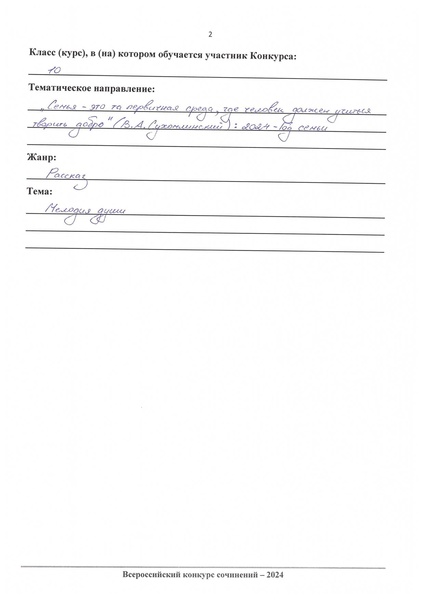 2
Класс (курс), в (на) котором обучается участник Конкурса:
10
Тематическое направление:
„Семья - это та первичная среда, где человек должен учиться
творить добро" (В.А.Сухомлинский) : 2024 - Год семьи
Жанр:
Рассказ
Тема:
Мелодия души
Всероссийский конкурс сочинений – 2024